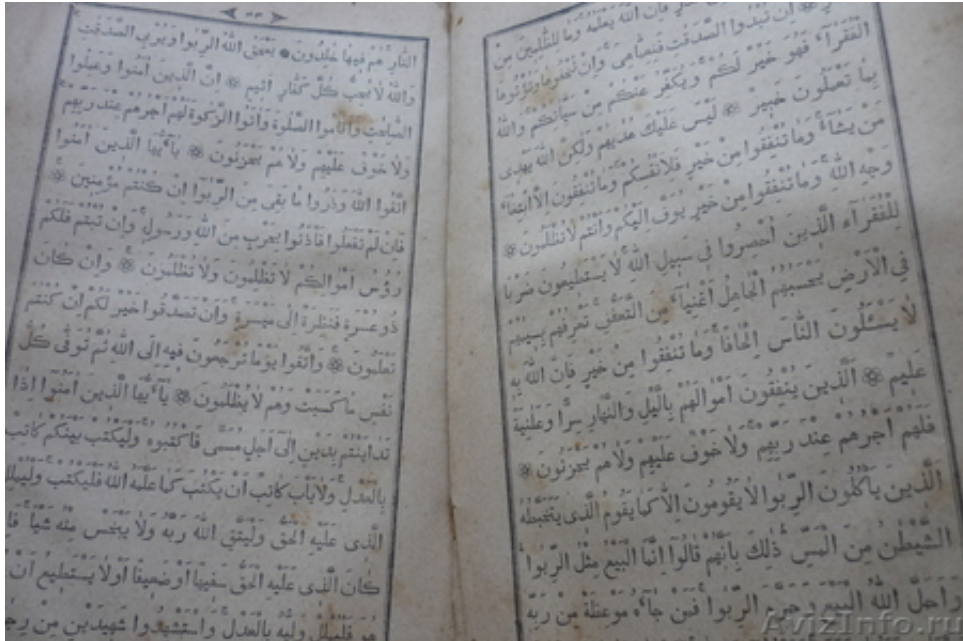 فَاِنَّ اللّٰهَ يَعْلَمُهُ وَمَا لِلظّٰلِمِينَ مِنْ
اِنْ تُبْدُوا الصَّدَقٰتِ فَنِعِمَّا هِىَ وَاِنْ تُخْفُوهَا وَتُؤْتُوهَا
الْفُقَرَآءَ فَهُوَ خَيْرٌ لَكُمْ وَيُكَفِّرُ عَنْكُمْ مِنْ سَيِّاٰتِكُمْ وَاللّٰهُ
بِمَا تَعْمَلُونَ خَبِيرٌ لَيْسَ عَلَيْكَ هُدٰيهُمْ وَلٰكِنَّ اللّٰهَ يَهْدِى
مَنْ يَشَآءُ وَمَا تُنْفِقُوا مِنْ خَيْرٍ فَلِاَنْفُسِكُمْ وَمَا تُنْفِقُونَ اِلَّا ابْتِغَآءَ
وَجْهِ اللّٰهِ وَمَا تُنْفِقُوا مِنْ خَيْرٍ يُوَفَّ اِلَيْكُمْ وَاَنْتُمْ لَا تُظْلَمُونَ
لِلْفُقَرَآءِ الَّذِينَ اُحْصِرُوا فِى سَبِيلِ اللّٰهِ لَا يَسْتَطِيعُونَ ضَرْبًا
فِى الْاَرْضِ يَحْسَبُهُمُ الْجَاهِلُ اَغْنِيَآءَ مِنَ التَّعَفُّفِ تَعْرِفُهُمْ بِسِيمٰيهُمْ
لَا يَسْـَٔلُونَ النَّاسَ اِلْحَافًا وَمَا تُنْفِقُوا مِنْ خَيْرٍ فَاِنَّ اللّٰهَ بِهِ
عَلِيمٌ اَلَّذِينَ يُنْفِقُونَ اَمْوَالَهُمْ بِالَّيْلِ وَالنَّهَارِ سِرًّا وَعَلَانِيَةً
فَلَهُمْ اَجْرُهُمْ عِنْدَ رَبِّهِمْ وَلَا خَوْفٌ عَلَيْهِمْ وَلَا هُمْ يَحْزَنُونَ
اَلَّذِينَ يَأْكُلُونَ الرِّبٰوا لَا يَقُومُونَ اِلَّا كَمَا يَقُومُ الَّذِى يَتَخَبَّطُهُ
الشَّيْطٰنُ مِنَ الْمَسِّ ذٰلِكَ بِاَنَّهُمْ قَالُوٓا اِنَّمَا الْبَيْعُ مِثْلُ الرِّبٰوا
وَاَحَلَّ اللّٰهُ الْبَيْعَ وَحَرَّمَ الرِّبٰوا فَمَنْ جَآءَهُ مَوْعِظَةٌ مِنْ رَبِّهِ
النَّارِ هُمْ فِيهَا خٰلِدُونَ يَمْحَقُ اللّٰهُ الرِّبٰوا وَيُرْبِى الصَّدَقٰتِ
وَاللّٰهُ لَا يُحِبُّ كُلَّ كَفَّارٍ اَثِيمٍ اِنَّ الَّذِينَ اٰمَنُوا وَعَمِلُوا
الصَّالِحٰتِ وَاَقَامُوا الصَّلٰوةَ وَاٰتَوُا الزَّكٰوةَ لَهُمْ اَجْرُهُمْ عِنْدَ رَبِّهِمْ
وَلَا خَوْفٌ عَلَيْهِمْ وَلَا هُمْ يَحْزَنُونَ يَآ اَيُّهَا الَّذِينَ اٰمَنُوا
اتَّقُوا اللّٰهَ وَذَرُوا مَا بَقِىَ مِنَ الرِّبٰٓوا اِنْ كُنْتُمْ مُؤْمِنِينَ
فَاِنْ لَمْ تَفْعَلُوا فَأْذَنُوا بِحَرْبٍ مِنَ اللّٰهِ وَرَسُولِهِ وَاِنْ تُبْتُمْ فَلَكُمْ
رُؤُسُ اَمْوَالِكُمْ لَا تَظْلِمُونَ وَلَا تُظْلَمُونَ وَاِنْ كَانَ
ذُو عُسْرَةٍ فَنَظِرَةٌ اِلٰى مَيْسَرَةٍ وَاَنْ تَصَدَّقُوا خَيْرٌ لَكُمْ اِنْ كُنْتُمْ
تَعْلَمُونَ وَاتَّقُوا يَوْمًا تُرْجَعُونَ فِيهِ اِلَى اللّٰهِ ثُمَّ تُوَفّٰى كُلُّ
نَفْسٍ مَا كَسَبَتْ وَهُمْ لَا يُظْلَمُونَ يَآ اَيُّهَا الَّذِينَ اٰمَنُوٓا اِذَا
تَدَايَنْتُمْ بِدَيْنٍ اِلٰٓى اَجَلٍ مُسَمًّى فَاكْتُبُوهُ وَلْيَكْتُبْ بَيْنَكُمْ كَاتِبٌ
بِالْعَدْلِ وَلَا يَأْبَ كَاتِبٌ اَنْ يَكْتُبَ كَمَا عَلَّمَهُ اللّٰهُ فَلْيَكْتُبْ وَلْيُمْلِلِ
الَّذِى عَلَيْهِ الْحَقُّ وَلْيَتَّقِ اللّٰهَ رَبَّهُ وَلَا يَبْخَسْ مِنْهُ شَيْـًٔا فَاِ
كَانَ الَّذِى عَلَيْهِ الْحَقُّ سَفِيهًا اَوْ ضَعِيفًا اَوْ لَا يَسْتَطِيعُ اَنْ
هُوَ فَلْيُمْلِلْ وَلِيُّهُ بِالْعَدْلِ وَاسْتَشْهِدُوا شَهِيدَيْنِ مِنْ رِجَا
AvizInfo.ru